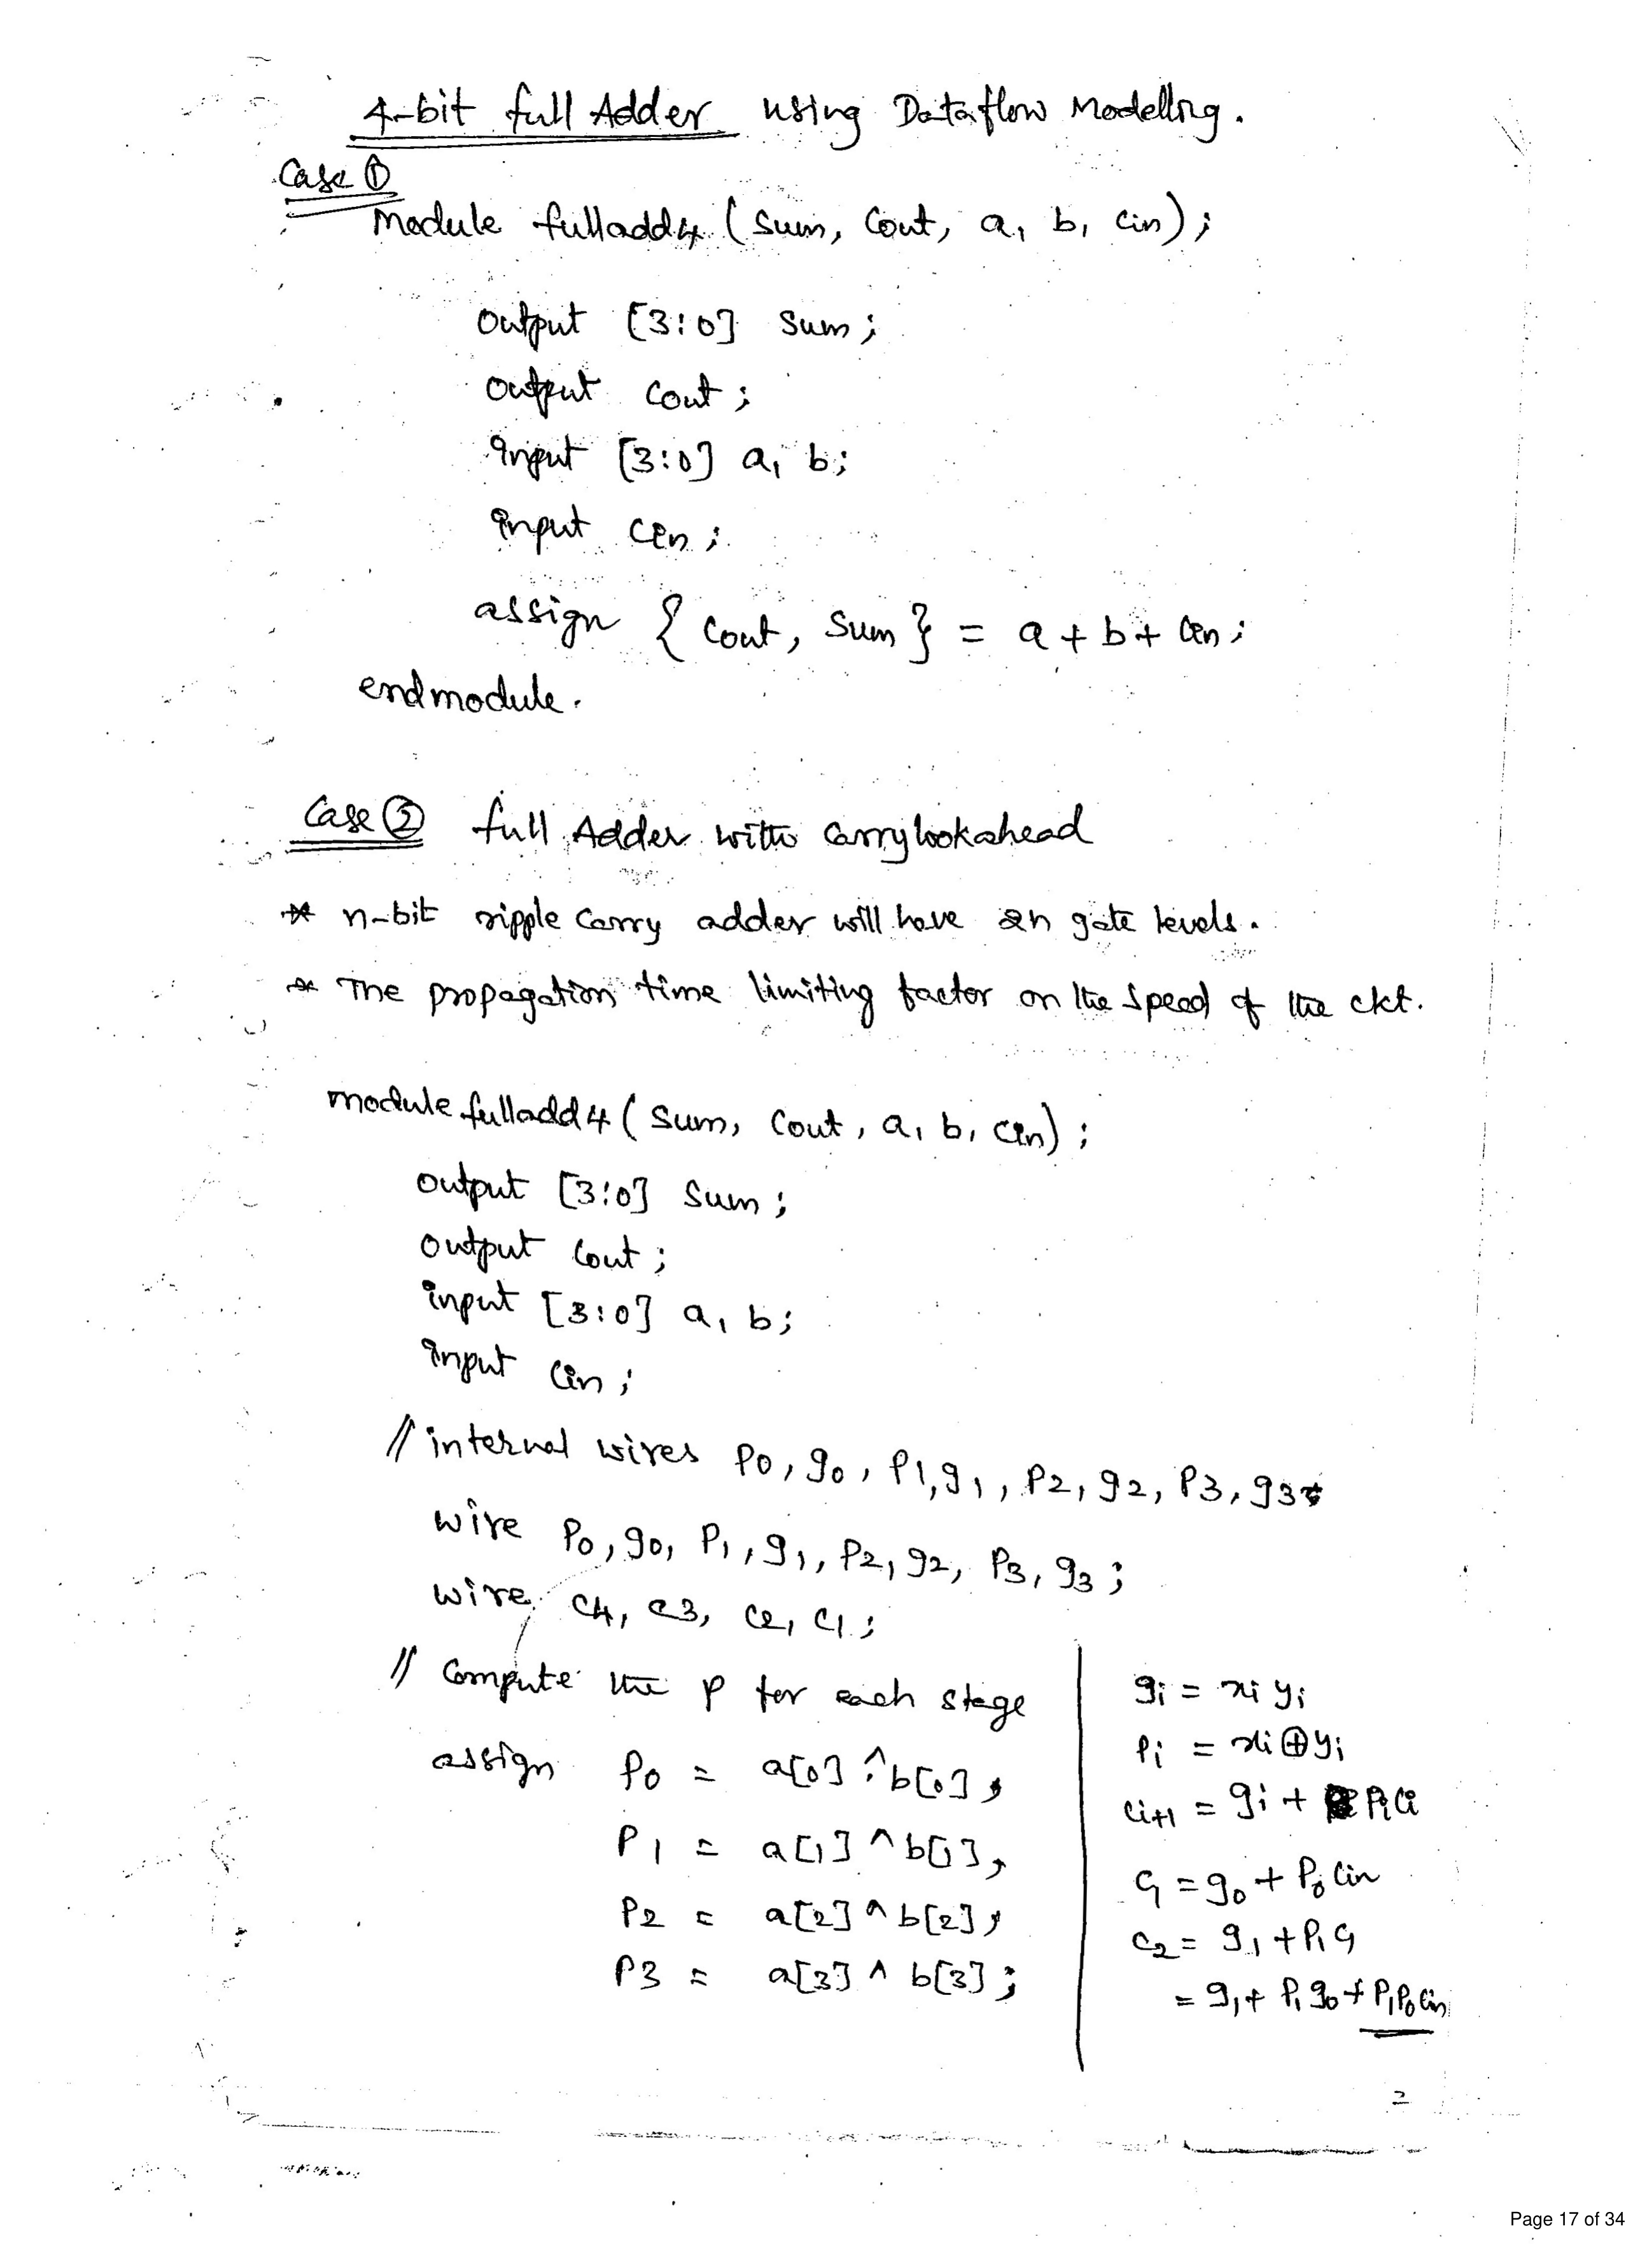 4-bit full Adder using Dataflow Modellng.
Case ①
module fulladd4 (sum, Cout, a, b, Cin);
output [3:0] sum;
output Cout;
input [3:0] a, b;
input Cin;
assign { Cout, Sum } = a + b + Cin;
endmodule.
Case ② full Adder with Carrylookahead
* n-bit ripple carry adder will have 2n gate levels.
* The propagation time limiting factor on the speed of the ckt.
module fulladd4 (sum, Cout, a, b, Cin);
output [3:0] sum;
output Cout;
input [3:0] a, b;
input Cin;
// internal wires P0, g0, P1, g1, P2, g2, P3, g3
wire P0, g0, P1, g1, P2, g2, P3, g3;
wire C4, C3, C2, C1;
// Compute the P for each stage
assign P0 = a[0] ^ b[0],
P1 = a[1] ^ b[1],
P2 = a[2] ^ b[2],
P3 = a[3] ^ b[3];
gi = xi yi
Pi = xi ⊕ yi
Ci+1 = gi + PiCi
C1 = g0 + P0 Cin
C2 = g1 + P1 C1
= g1 + P1 g0 + P1P0 Cin
2
Page 17 of 34